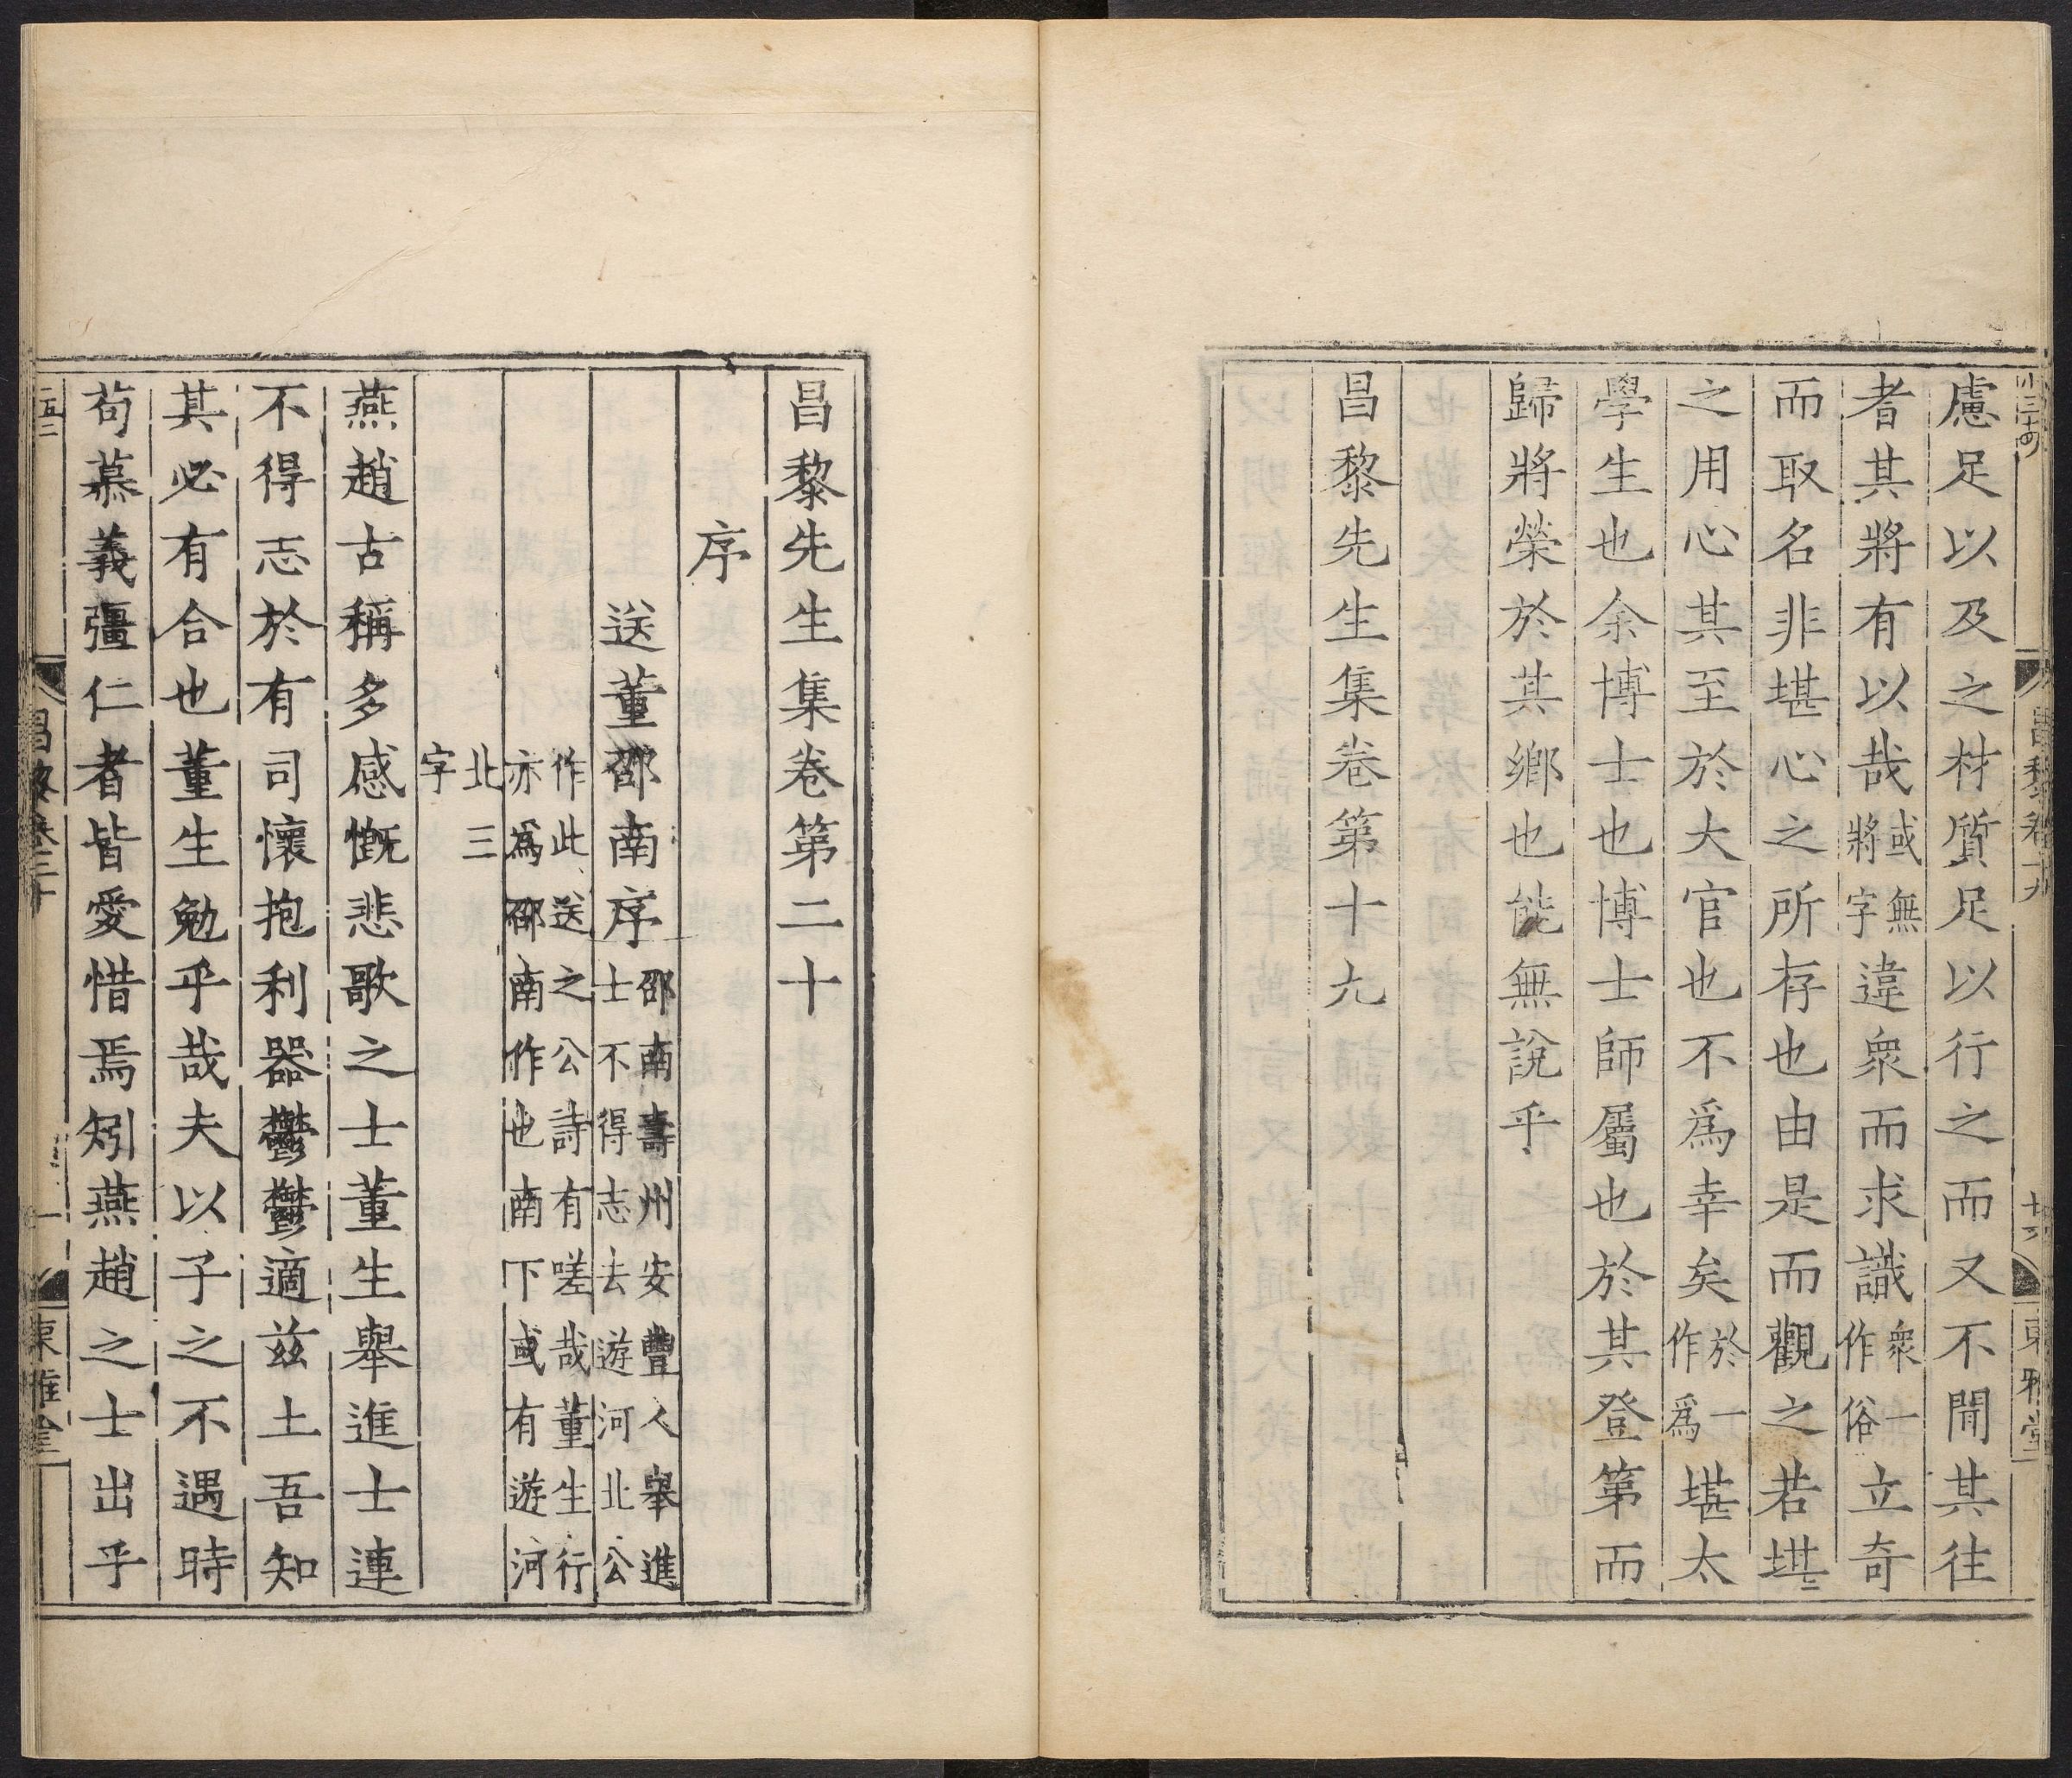 慮足以及之材質足以行之而又不聞其往
者其將有以哉或無將字違衆而求識衆一作俗立奇
而取名非堪心之所存也由是而觀之若堪
之用心其至於大官也不爲幸矣於一作爲堪太
學生也余博士也博士師屬也於其登第而
歸將榮於其鄉也能無說乎
昌黎先生集卷第十九
昌黎先生集卷第二十
序
送董邵南序邵南壽州安豐人舉進士不得志去遊河北公
作此送之公詩有嗟哉董生行亦爲邵南作也南下或有遊河
北三字
燕趙古稱多感慨悲歌之士董生舉進士連
不得志於有司懷抱利器鬱鬱適茲土吾知
其必有合也董生勉乎哉夫以子之不遇時
苟慕義彊仁者皆愛惜焉矧燕趙之士出乎
昌黎卷二十
一
東雅堂